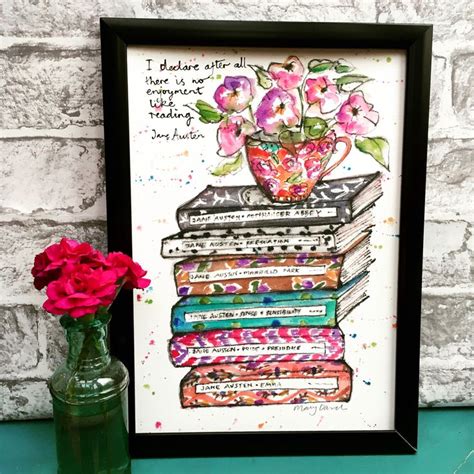 I declare after all
there is no
enjoyment
like
reading
Jane Austen
JANE AUSTEN • NORTHANGER ABBEY
JANE AUSTEN • PERSUASION
JANE AUSTEN • MANSFIELD PARK
JANE AUSTEN • SENSE & SENSIBILITY
JANE AUSTEN • PRIDE • PREJUDICE
JANE AUSTEN • EMMA
Mary